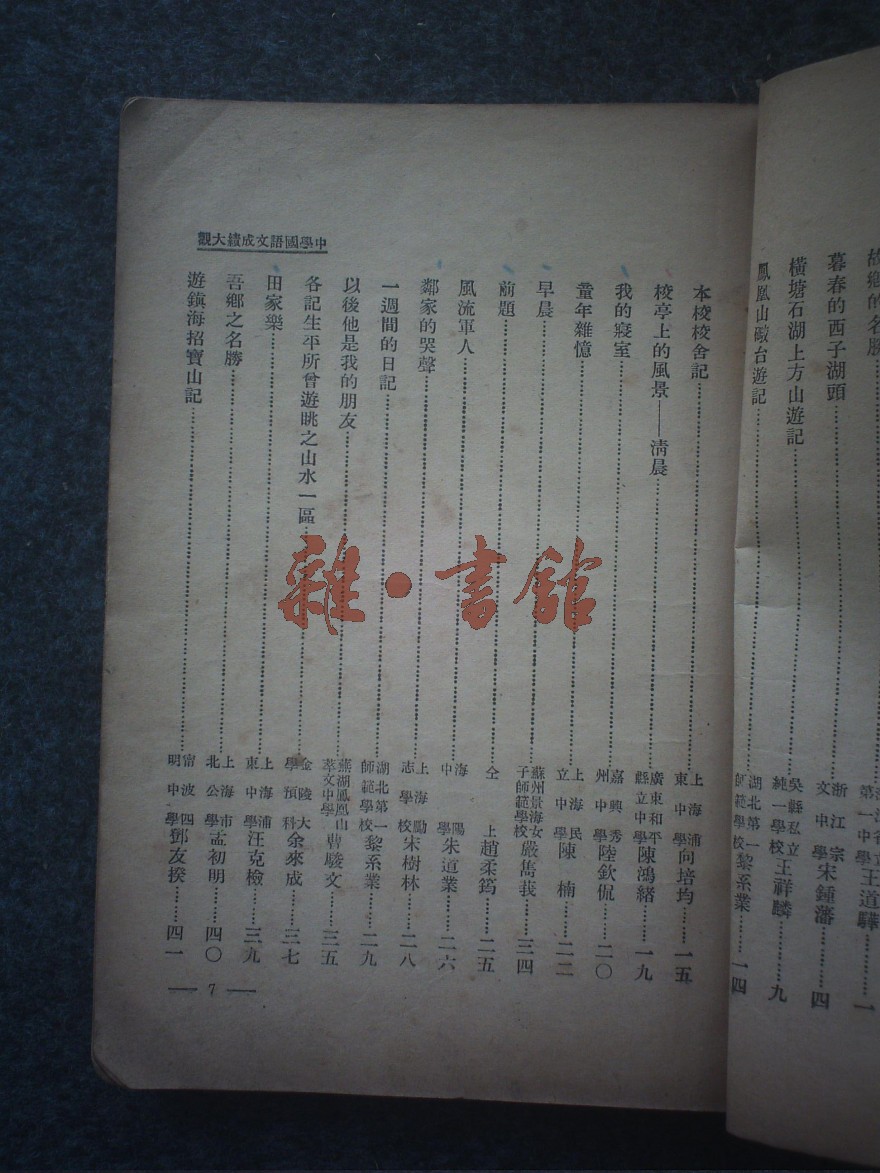 故鄉的名勝……第一中學王道驊……一
暮春的西子湖頭……浙江宗文中學宋鍾藩……四
橫塘石湖上方山遊記……吳縣私立純一學校王祥麟……九
鳳凰山礮台遊記……湖北第一師範學校黎系業……一四
中學國語文成績大觀
本校校舍記……上海浦東中學向培均……一五
校亭上的風景——清晨……廣東和平縣立中學陳鴻緒……一九
我的寢室……嘉興秀州中學陸欽侃……二〇
童年雜憶……上海民立中學陳楠……二二
早晨……蘇州景海女子師範學校嚴雋莪……三四
前題……仝上趙柔筠……二五
風流軍人……海陽中學朱道業……二六
鄰家的哭聲……上海勵志學校宋樹林……二八
一週間的日記……湖北第一師範學校黎系業……二九
以後他是我的朋友……蕪湖鳳凰山萃文中學曹駿文……三五
各記生平所曾遊眺之山水一區……金陵大學預科余來成……三七
田家樂……上海浦東中學汪克檢……三九
吾鄉之名勝……上海市北公學孟初明……四〇
遊鎮海招寶山記……甯波四明中學鄧友揆……四一
— 7 —
雜·書館